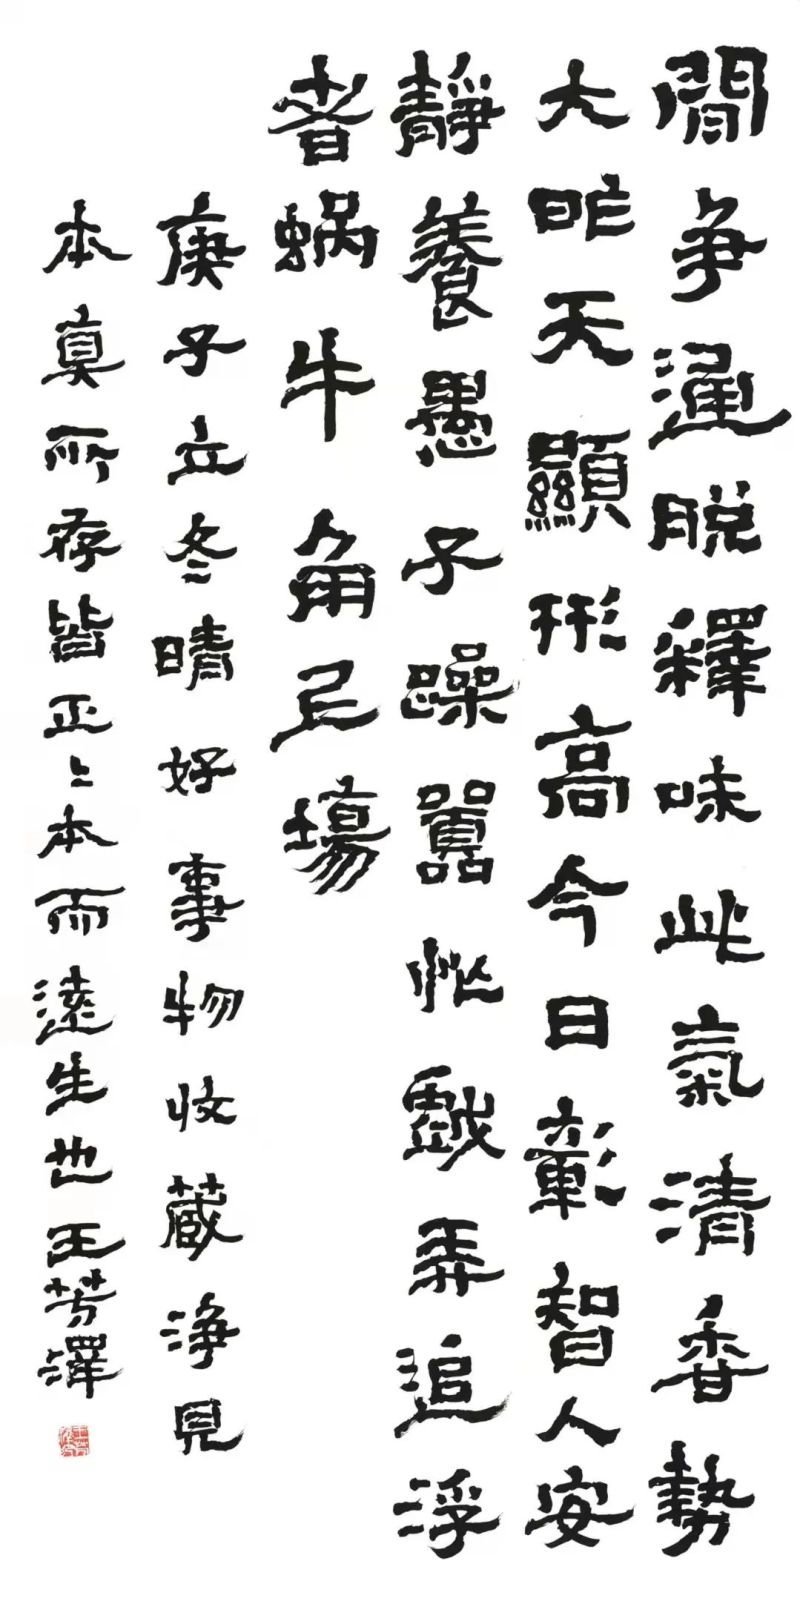 閒爭通脫釋味此氣清香勢
大昨天顯形高今日彰智人安
靜養愚子躁嚣忙戲弄追浮
者蝸牛角已場
庚子立冬晴好事物收藏淨見
本真所存皆正〻本而遠生也王芳澤